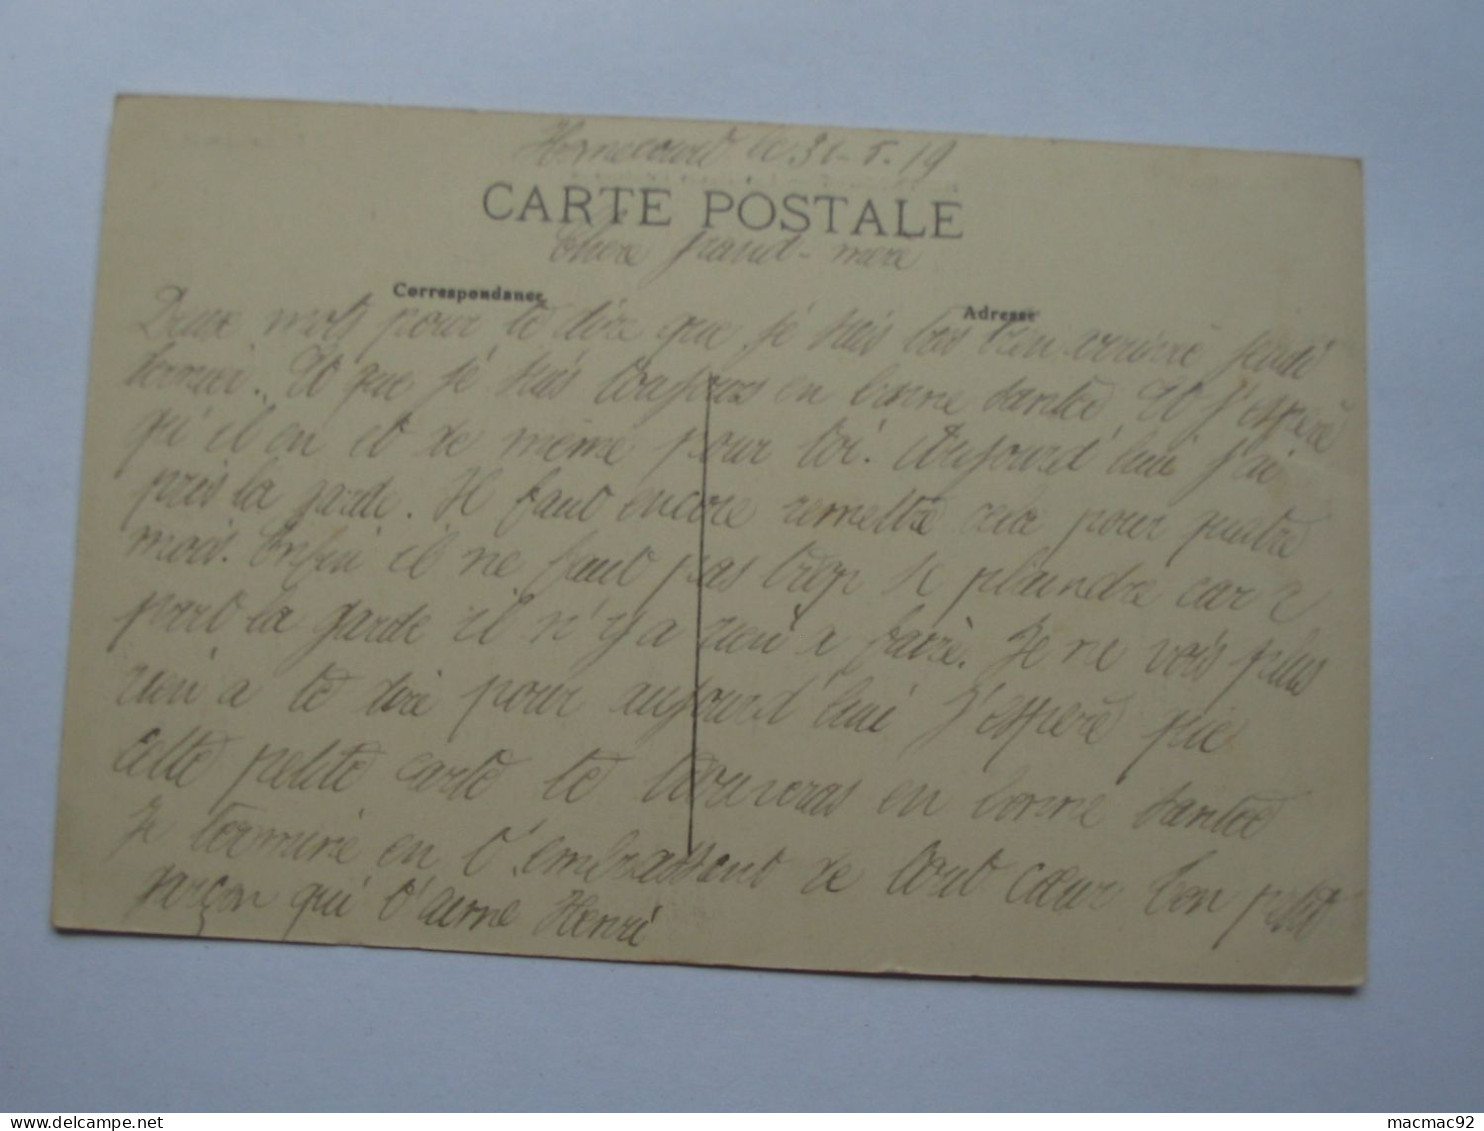 Homecourt le 31-5.19
CARTE POSTALE
Chere grand-mere
Correspondance
Adresse
Deux mots pour te dire que je suis bien jeudi
dernier. Et que je suis toujours en bonne santée Et j'espere
qu'il en et de même pour toi. Aujourd'hui j'ai
pris la garde. Il faut encore remettre cela pour quatre
mois. Enfin il ne faut pas trop se plaindre car a
part la garde il n'y a rien a faire. Je ne vois plus
rien a te dire pour aujourd'hui J'espere que
cette petite carte te trouveras en bonne santée
Je termine en t'embrassent de tout cœur ton petit
garçon qui t'aime Henri
macmac92